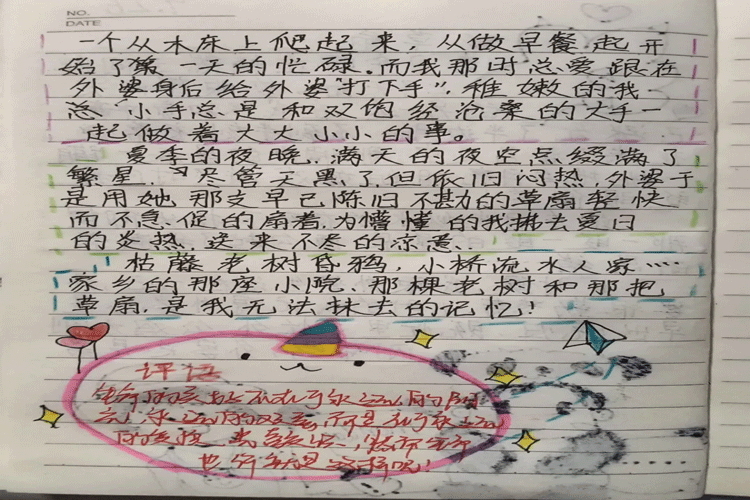 NO.
DATE
一个从木床上爬起来，从做早餐起开
始了第一天的忙碌。而我那时总爱跟在
外婆身后给外婆"打下手"，稚嫩的我
总"小手总是和双饱经沧桑的大手一
起做着大大小小的事。
夏季的夜晚，满天的夜空点缀满了
繁星，尽管天黑了，但依旧闷热，外婆于
是用她那支早已陈旧不堪的草扇轻快
而不急促的扇着，为懵懂的我拂去夏日
的炎热，送来不尽的凉意、
枯藤老树昏鸦，小桥流水人家……
家乡的那座小院、那棵老树和那把
草扇，是我无法抹去的记忆！
评语
的
，而是
的
也许就是这样吧！